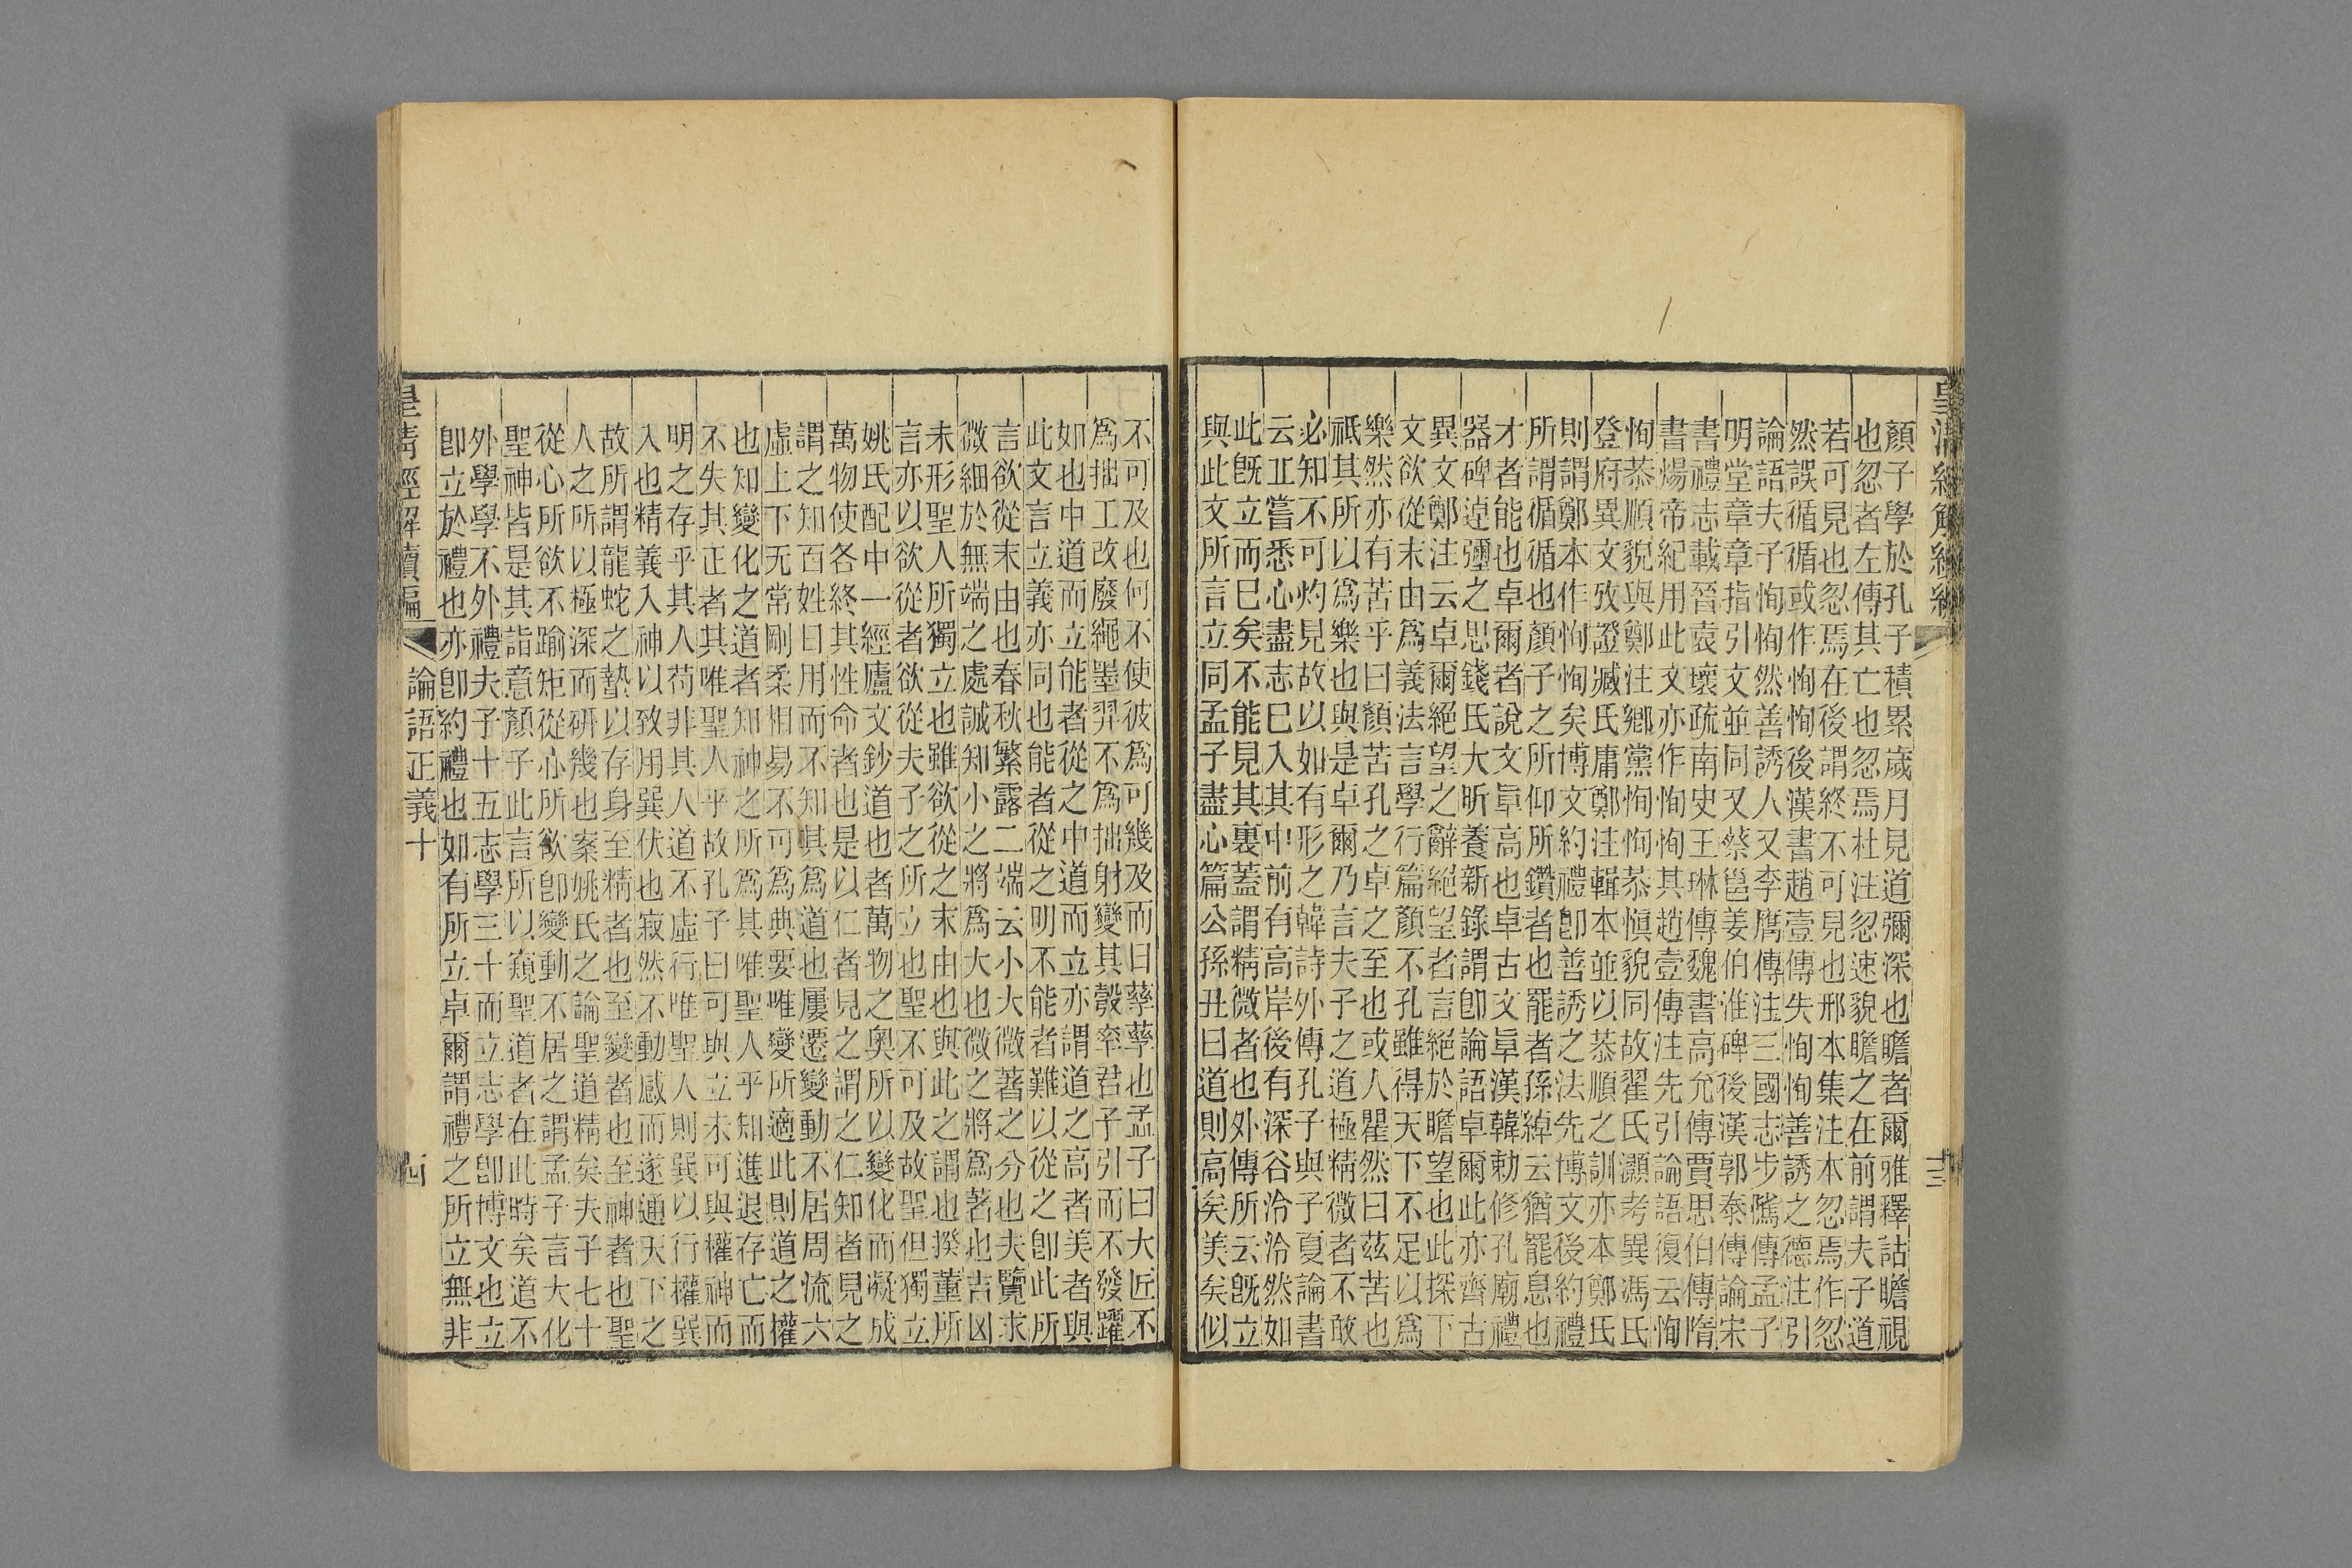 皇清經解續編
十三
顏子學於孔子積累歲月見道彌深也瞻者爾雅釋詁瞻視
也忽者左傳其亡也忽焉杜注忽速貌瞻之在前謂夫子道
若可見也忽焉在後謂終不可見也邢本集注本忽焉作忽
然誤循循或作恂恂後漢書趙壹傳失恂恂善誘之德注引
論語夫子恂恂然善誘人又李膺傳注三國志步騭傳孟子
明堂章章指引文並同又蔡邕姜伯淮碑後漢郭泰傳論宋
書禮志載晉袁壞疏南史王琳傳魏書高允傳賈思伯傳隋
書煬帝紀用此文亦作恂恂其趙壹傳注先引論語復云恂
恂恭順貌與鄭注鄉黨恂恂恭慎貌同故翟氏灝考異馮氏
登府異文攷證臧氏庸鄭注輯本並以恭順之訓亦本鄭氏
則謂鄭本作恂恂矣博文約禮即善誘之法先博文後約禮
所謂循循也顏子之所仰所鑽者也罷者孫綽云猶罷息也
才者能也卓爾者說文𠦝高也卓古文𠦝漢韓勑修孔廟禮
器碑逴彌之思錢氏大昕養新錄謂即論語卓爾此亦齊古
異文鄭注云卓爾絕望之辭絕望者言絕於瞻望也此探下
文欲從末由爲義法言學行篇顏不孔雖得天下不足以爲
樂然亦有苦乎曰顏苦孔之卓之至也或人瞿然曰茲苦也
祇其所以爲樂也與是卓爾乃言夫子之道極精微者不敢
必知不可灼見故以如有形之韓詩外傳孔子與子夏論書
云丘嘗悉心盡志已入其中前有高岸後有深谷泠泠然如
此既立而已矣不能見其裏蓋謂精微者也外傳所云既立
與此文所言立同孟子盡心篇公孫丑曰道則高矣美矣似
不可及也何不使彼爲可幾及而日孳孳也孟子曰大匠不
爲拙工改廢繩墨羿不爲拙射變其彀率君子引而不發躍
如也中道而立能者從之中道而立亦謂道之高者美者與
此文言立義亦同也能者從之明不能者難以從之即此所
言欲從末由也春秋繁露二端云小大微著之分也夫覽求
微細於無端之處誠知小之將爲大也微之將爲著也吉凶
未形聖人所獨立也雖欲從之末由也與此之謂也揆董所
言亦以欲從者欲從夫子之所立也聖不可及故聖但獨立
姚氏配中一經廬文鈔道也者萬物之奧所以變化而凝成
萬物使各終其性命者也是以仁者見之謂之仁知者見之
謂之知百姓日用而不知其爲道也屢遷變動不居周流六
虛上下无常剛柔相易不可爲典要唯變所適此則道之權
也知變化之道者知神之所爲其唯聖人乎知進退存亡而
不失其正者其唯聖人乎故孔子曰可與立未可與權神而
明之存乎其人苟非其人道不虛行唯聖人則巽以行權巽
入也精義入神以致用巽伏也寂然不動感而遂通天下之
故所謂龍蛇之蟄以存身至精者也至變者也至神者也聖
人之所以極深而研幾也案姚氏之論聖道精矣夫子七十
從心所欲不踰矩從心所欲即變動不居之謂孟子言大化
聖神皆是其詣意顏子此言所以窺聖道者在此時矣道不
外學學不外禮夫子十五志學三十而立志學即博文也立
即立於禮也亦即約禮也如有所立卓爾謂禮之所立無非
皇清經解續編
論語正義十
四